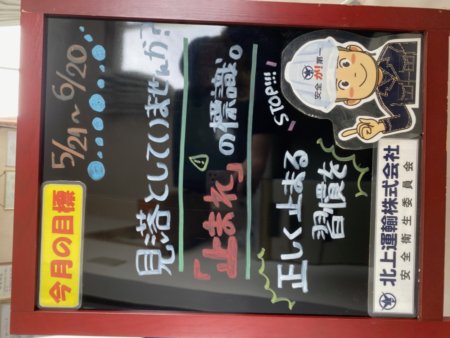 今月の目標
5/21～6/20
見落としていませんか?
「止まれ」の標識。
STOP!!!
正しく止まる
習慣を
安全 が! 第一
北上運輸株式会社
安全衛生委員会